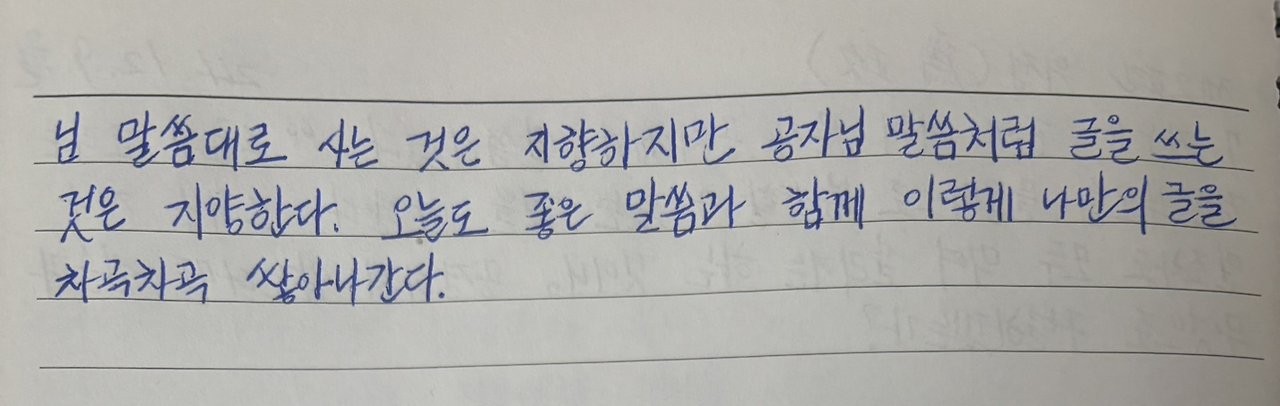 님 말씀대로 사는 것은 지향하지만 공자님 말씀처럼 글을 쓰는
것은 지양한다. 오늘도 좋은 말씀과 함께 이렇게 나만의 글을
차곡차곡 쌓아나간다.